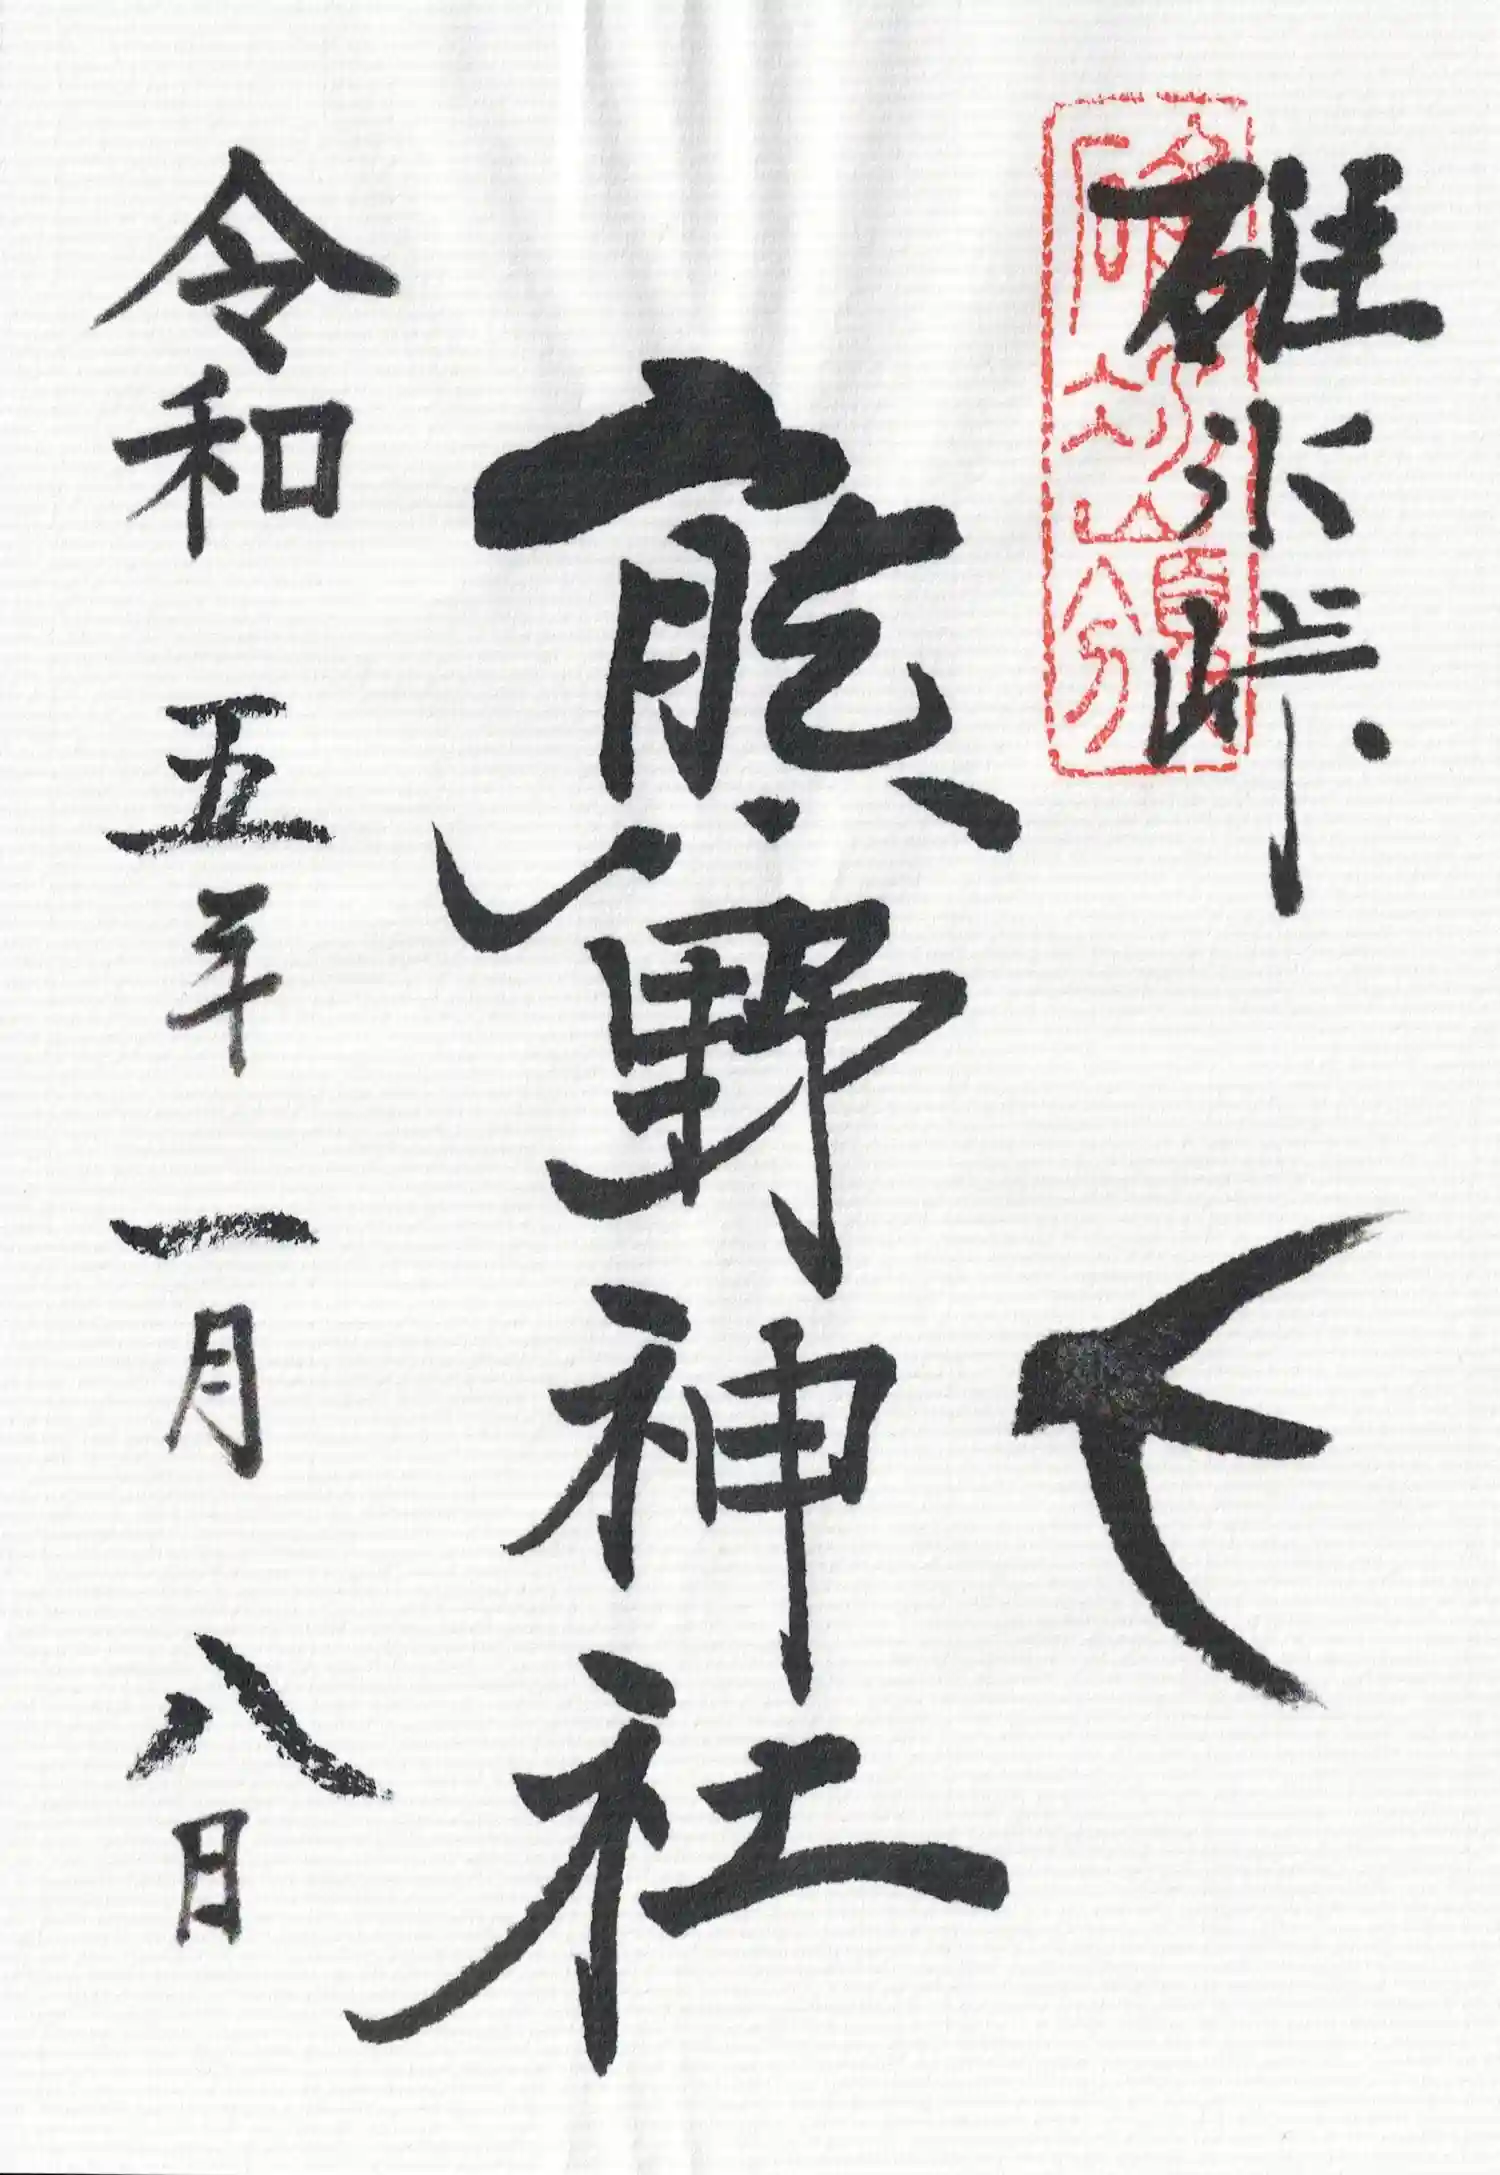 碓氷峠
熊野神社
令和五年一月八日